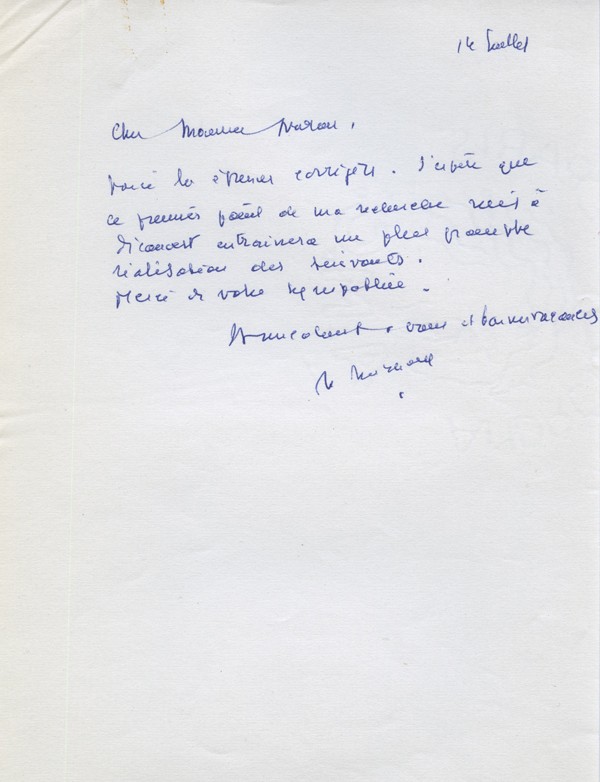 14 Juillet
Cher Monsieur
voici les épreuves corrigées. J'espère que
ce premier point de ma recherche mis à
découvert entrainera une plus prompte
réalisation des suivants.
Merci de votre sympathie.
Amicalement à vous et bonnes vacances